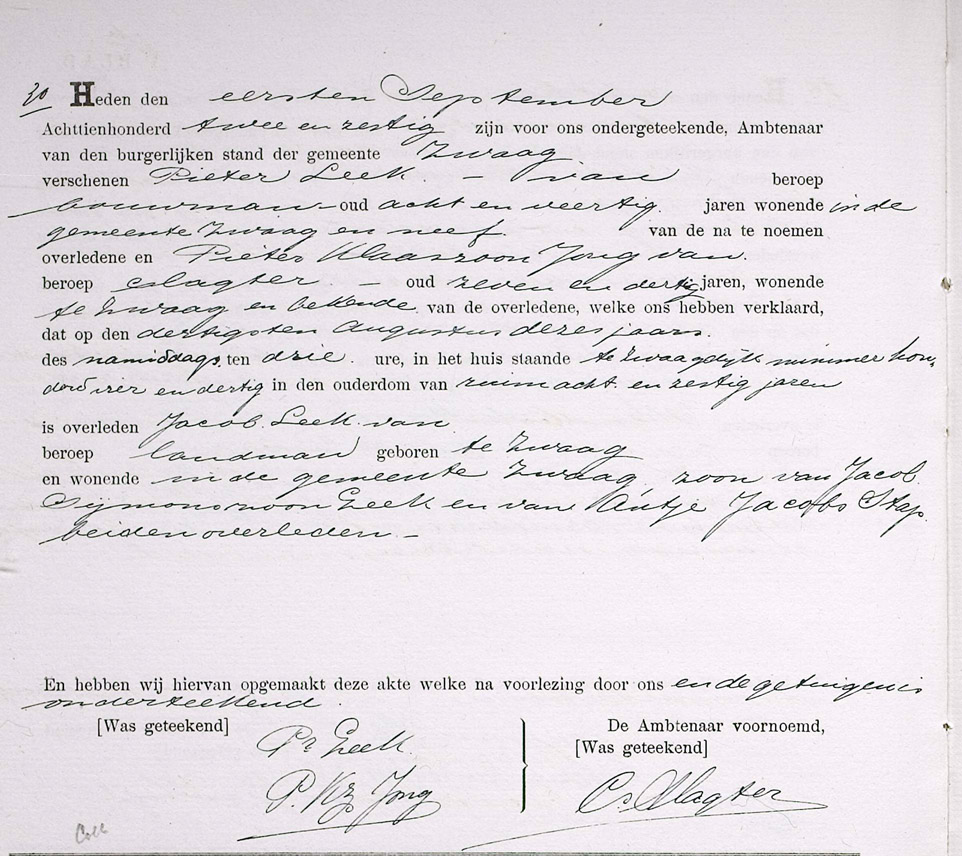 30 Heden den eersten September
Achttienhonderd twee en zestig zijn voor ons ondergeteekende, Ambtenaar
van den burgerlijken stand der gemeente Zwaag
verschenen Pieter Leek. – van beroep
bouwman oud acht en veertig. jaren wonende in de
gemeente Zwaag en neef. van de na te noemen
overledene en Pieter Klaaszoon Jong van.
beroep slagter – oud zeven en dertig jaren, wonende
te Zwaag en bekende. van de overledene, welke ons hebben verklaard,
dat op den dertigsten Augustus dezes jaars.
des namiddags ten drie. ure, in het huis staande te Zwaagdijk nummer hon-
derd vier en dertig in den ouderdom van ruim acht en zestig jaren
is overleden Jacob Leek van
beroep landman geboren te Zwaag
en wonende in de gemeente Zwaag, zoon van Jacob
Sijmonszoon Leek en van Antje Jacobs Stap.
beiden overleden. –
En hebben wij hiervan opgemaakt deze akte welke na voorlezing door ons en de getuigen is
onderteekend.
[Was geteekend] De Ambtenaar voornoemd,
Pr Leek. [Was geteekend]
P. Kz Jong Cs Slagter
Coll